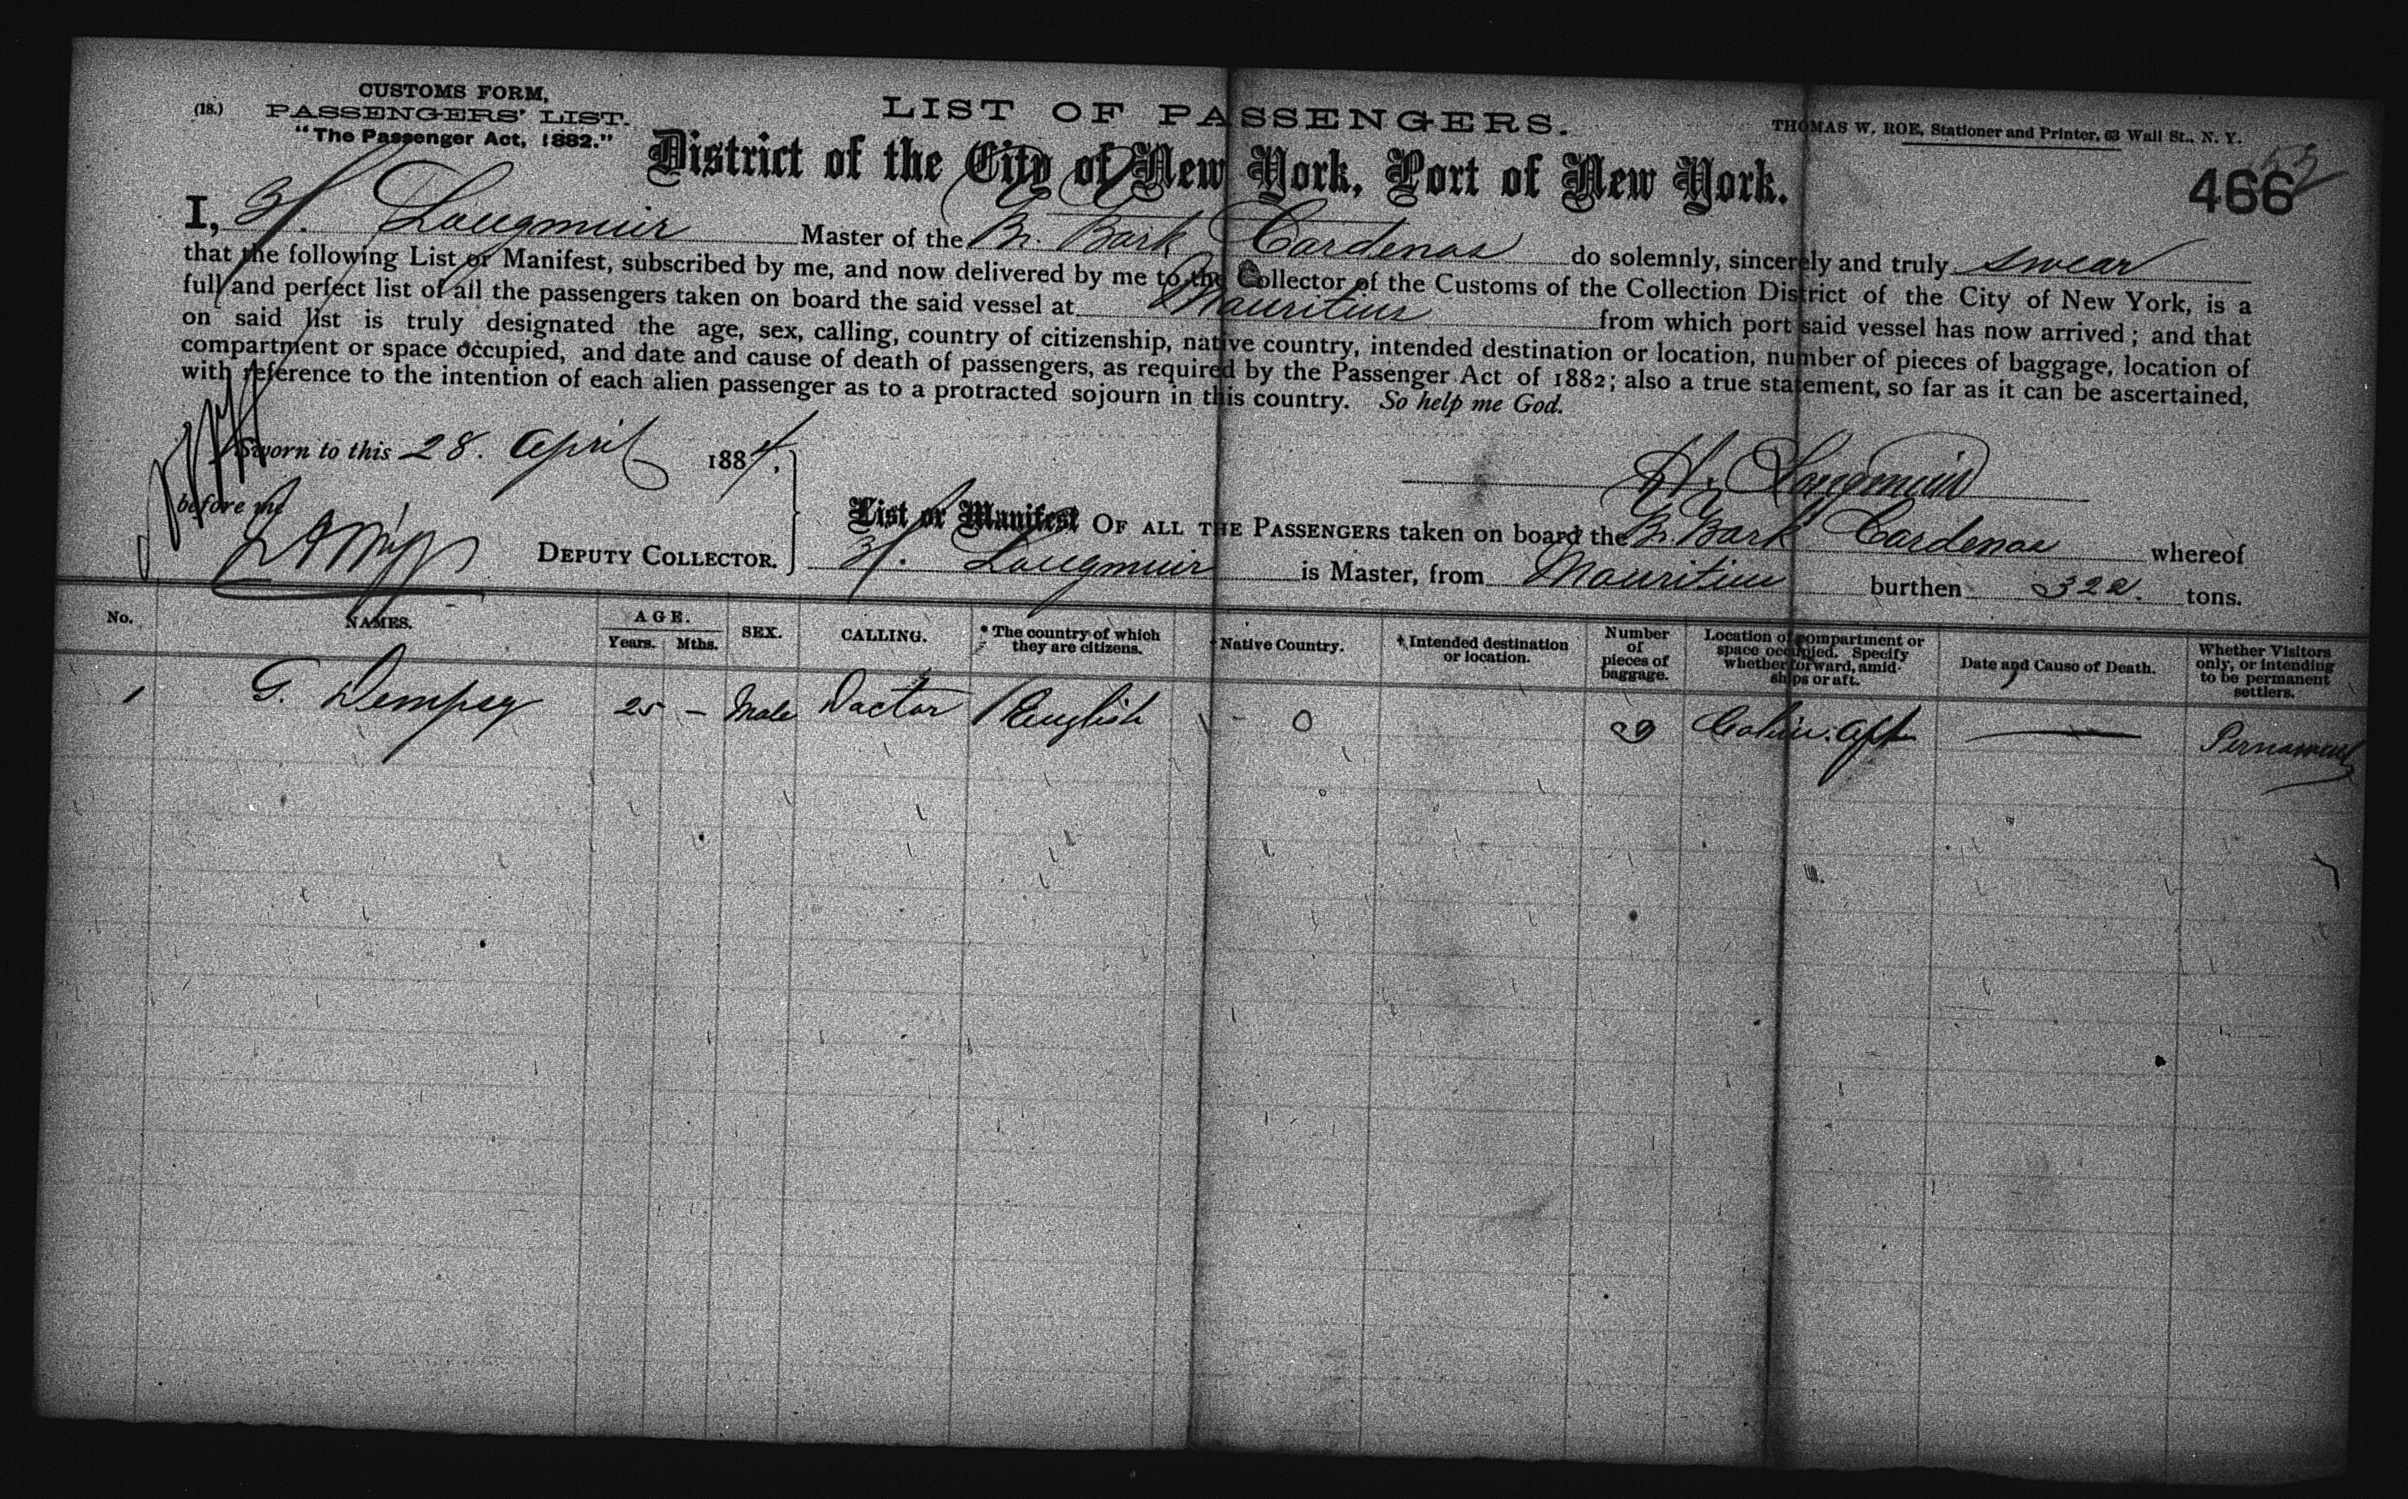 CUSTOMS FORM,
(18.) PASSENGERS' LIST.
"The Passenger Act, 1882."
LIST OF PASSENGERS.
THOMAS W. ROE, Stationer and Printer, 63 Wall St., N. Y.
District of the City of New York, Port of New York.
53
466
I, H. Longmuir Master of the Br. Bark Cardenas do solemnly, sincerely and truly swear
that the following List or Manifest, subscribed by me, and now delivered by me to the Collector of the Customs of the Collection District of the City of New York, is a
full and perfect list of all the passengers taken on board the said vessel at Mauritius from which port said vessel has now arrived; and that
on said list is truly designated the age, sex, calling, country of citizenship, native country, intended destination or location, number of pieces of baggage, location of
compartment or space occupied, and date and cause of death of passengers, as required by the Passenger Act of 1882; also a true statement, so far as it can be ascertained,
with reference to the intention of each alien passenger as to a protracted sojourn in this country. So help me God.
Sworn to this 28. April 1884.
H. Longmuir
before me
DEPUTY COLLECTOR.
List or Manifest OF ALL THE PASSENGERS taken on board the Br. Bark Cardenas whereof
H. Longmuir is Master, from Mauritius burthen 322. tons.
No. NAMES. AGE. Years. Mths. SEX. CALLING. * The country of which they are citizens. † Native Country. ‡ Intended destination or location. Number of pieces of baggage. Location of compartment or space occupied. Specify whether forward, amidships or aft. Date and Cause of Death. Whether Visitors only, or intending to be permanent settlers.
1 G. Dempsy 25 - Male Doctor English - 0 Cabin. aft — Permanent